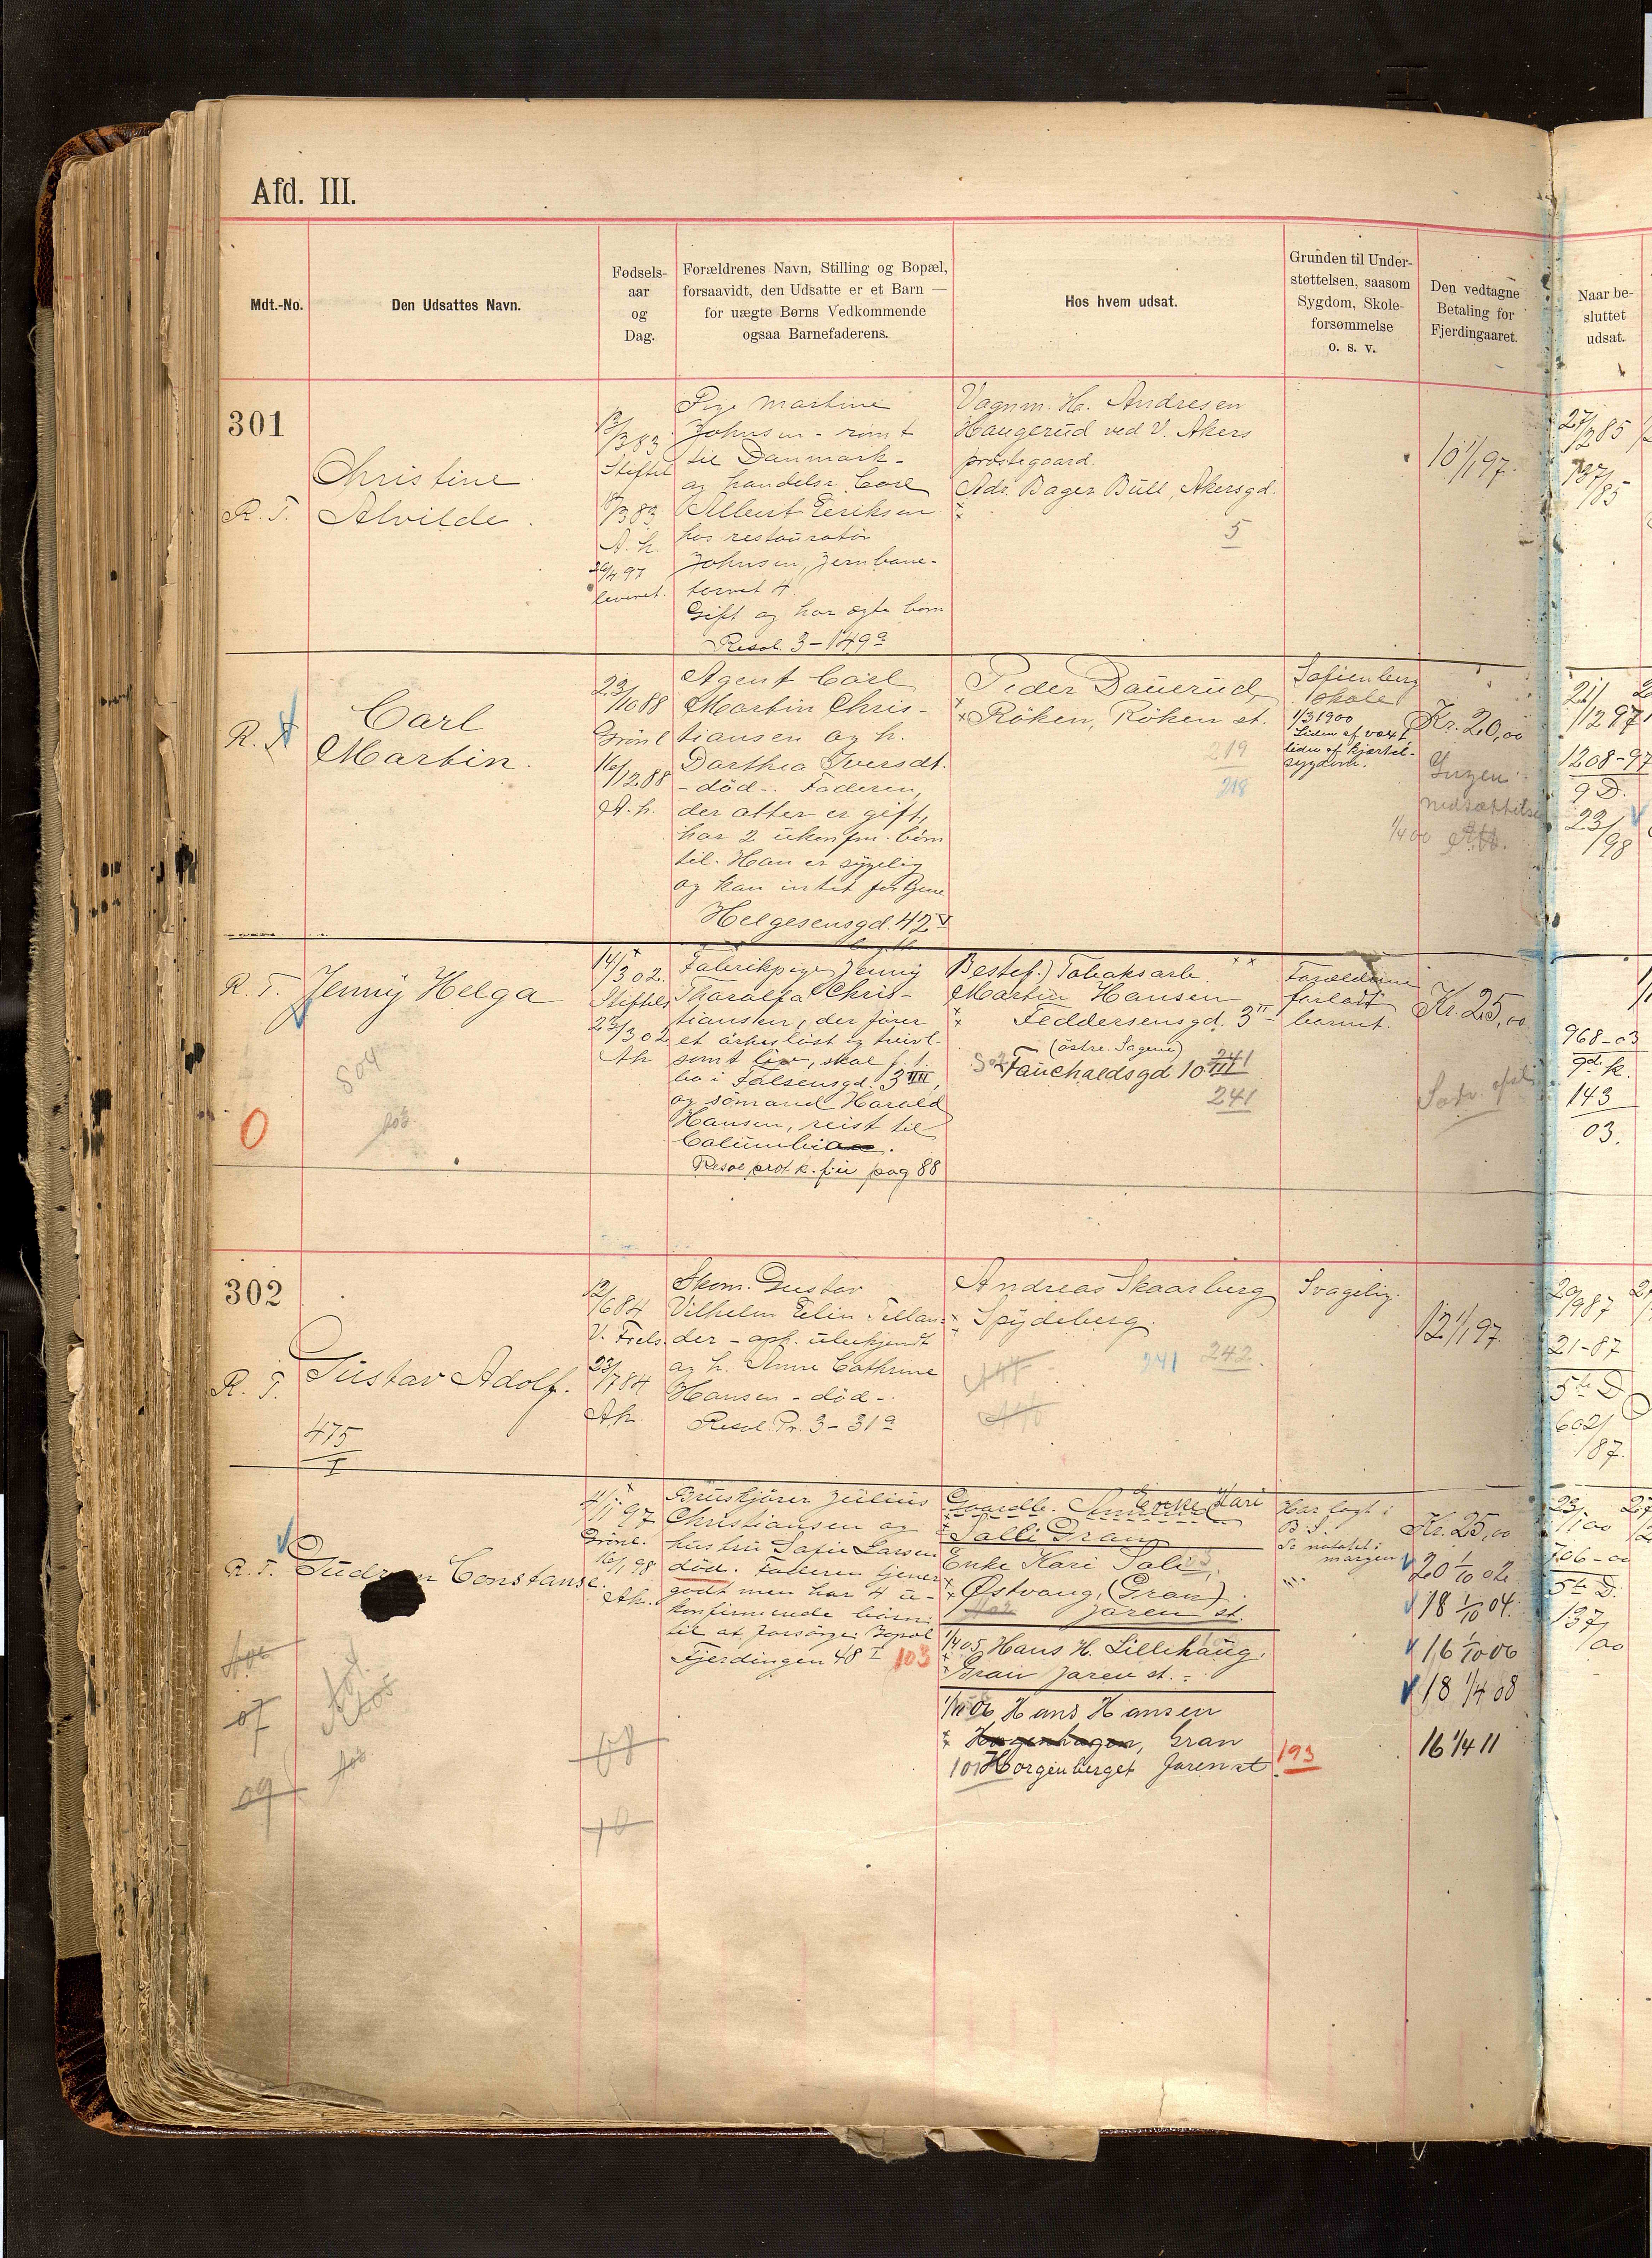 Afd. III.
Mdt.-No.
Den Udsattes Navn.
Fødsels-
aar
og
Dag.
Forældrenes Navn, Stilling og Bopæl,
forsaavidt, den Udsatte er et Barn —
for uægte Børns Vedkommende
ogsaa Barnefaderens.
Hos hvem udsat.
Grunden til Under-
støttelsen, saasom
Sygdom, Skole-
forsømmelse
o. s. v.
Den vedtagne
Betaling for
Fjerdingaaret.
Naar be-
sluttet
udsat.
301
R. T.
Christine
Alvilde.
12/3 83
Stiftel
A. h.
leveret.
Pige Martine
Johnsen - rømt
til Danmark -
og handelsr. Carl
Albert Eriksen
hos restauratør
Johnsen, Jernbane-
torvet 4
Gift og har ægte børn
Resol. 3 - 149a
Vognm. H. Andresen
Haugerud ved V. Akers
prestegaard.
Adr. Bager Bull, Akersgd.
5
10 1/1 97.
27/2 85
137/85
R. T.
Carl
Martin.
23/10 88
Grønl
16/12 88
A. h.
Agent Carl
Martin Chris-
tiansen og h.
Dorthea Iversdt.
- død -. Faderen,
der atter er gift,
har 2 ukonfm. børn
til. Han er sygelig
og kan intet fortjene
Helgesensgd. 42 V
Peder Dauerud
Røken, Røken st.
219
218
Sofienberg
skole
1/3 1900
Liden af vext
lider af hjærtel-
sygdom.
Kr. 20,00
Ingen
nedsættelse
1/4 00
21/12 97
1208-97
9 D.
23/98
R. T.
Jenny Helga
504
0
14/3 02
Stiftels
23/3 02
Ah
Fabrikpige Jenny
Tharalfa Chris-
tiansen, der fører
et arbeisløst og tvivl-
somt liv, skal f. t.
bo i Falsensgd. 3 III,
og sømand Harald
Hansen, reist til
Columbia.
Resol prot k. f. iii pag 88
Bestef.) Tobaksarb.
Martin Hansen
Feddersensgd. 3 II
(østre Sagene)
Fauchaldsgd 10 III
241
241
Forældrene
forladt
barnet.
Kr. 25,00
968-03
9d. k.
143
03.
302
R. T.
Gustav Adolf.
475
I
12/6 84
V. Frels.
23/7 84
Ah.
Skom. Gustav
Vilhelm Elin Tellan-
der - oph. ubekjendt
og h. Anne Cathrine
Hansen - død -.
Resol. Pr. 3 - 31a
Andreas Skaarberg
Spydeberg.
241 242
Svagelig.
12 1/1 97.
20/9 87
21-87
5te D.
602/87.
R. T.
Constanse.
07
09
4/11 97
Grønl.
16/1 98
Ah.
Bruskjører Julius
Christiansen og
hustru Sofie Larsen
død. Faderen tjener
godt men har 4 u-
konfirmerede børn
til at forsørge. Bopæl
Fjerdingen 48 I
103
Enke Kari
Enke Kari
Østvang, (Gran)
Jaren st.
1/4 05 Hans H. Lillehaug.
Gran Jaren st.
Hans Hansen
Gran
101 Horgenberget Jaren st
193
Har lagt i
B. S.
Se notatet i
margen
Kr. 25,00
20 1/10 02
18 1/10 04.
16 1/10 06
18 1/4 08
16 1/4 11
23/1 00
706-00
5te D.
137/00